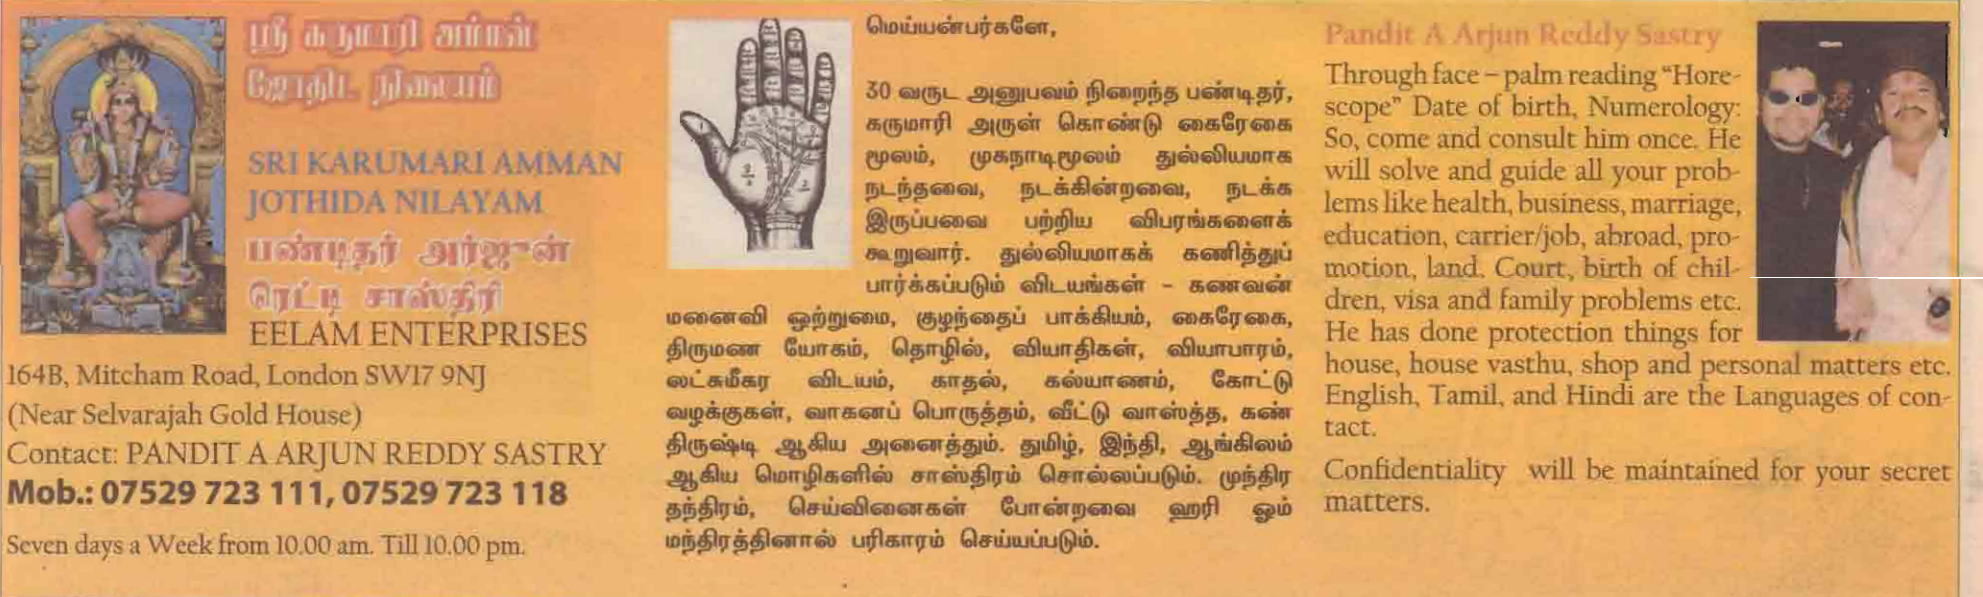 ஸ்ரீ கருமாரி அம்மன்
ஜோதிட நிலையம்
SRI KARUMARI AMMAN
JOTHIDA NILAYAM
பண்டிதர் அர்ஜுன்
ரெட்டி சாஸ்திரி
EELAM ENTERPRISES
164B, Mitcham Road, London SW17 9NJ
(Near Selvarajah Gold House)
Contact: PANDIT A ARJUN REDDY SASTRY
Mob.: 07529 723 111, 07529 723 118
Seven days a Week from 10.00 am. Till 10.00 pm.
மெய்யன்பர்களே,
30 வருட அனுபவம் நிறைந்த பண்டிதர்,
கருமாரி அருள் கொண்டு கைரேகை
மூலம், முகநாடிமூலம் துல்லியமாக
நடந்தவை, நடக்கின்றவை, நடக்க
இருப்பவை பற்றிய விபரங்களைக்
கூறுவார். துல்லியமாகக் கணித்துப்
பார்க்கப்படும் விடயங்கள் - கணவன்
மனைவி ஒற்றுமை, குழந்தைப் பாக்கியம், கைரேகை,
திருமண யோகம், தொழில், வியாதிகள், வியாபாரம்,
லட்சுமீகர விடயம், காதல், கல்யாணம், கோட்டு
வழக்குகள், வாகனப் பொருத்தம், வீட்டு வாஸ்த்த, கண்
திருஷ்டி ஆகிய அனைத்தும். துமிழ், இந்தி, ஆங்கிலம்
ஆகிய மொழிகளில் சாஸ்திரம் சொல்லப்படும். முந்திர
தந்திரம், செய்வினைகள் போன்றவை ஹரி ஓம்
மந்திரத்தினால் பரிகாரம் செய்யப்படும்.
Pandit A Arjun Reddy Sastry
Through face – palm reading “Hore-
scope” Date of birth, Numerology:
So, come and consult him once. He
will solve and guide all your prob-
lems like health, business, marriage,
education, carrier/job, abroad, pro-
motion, land. Court, birth of chil-
dren, visa and family problems etc.
He has done protection things for
house, house vasthu, shop and personal matters etc.
English, Tamil, and Hindi are the Languages of con-
tact.
Confidentiality will be maintained for your secret
matters.